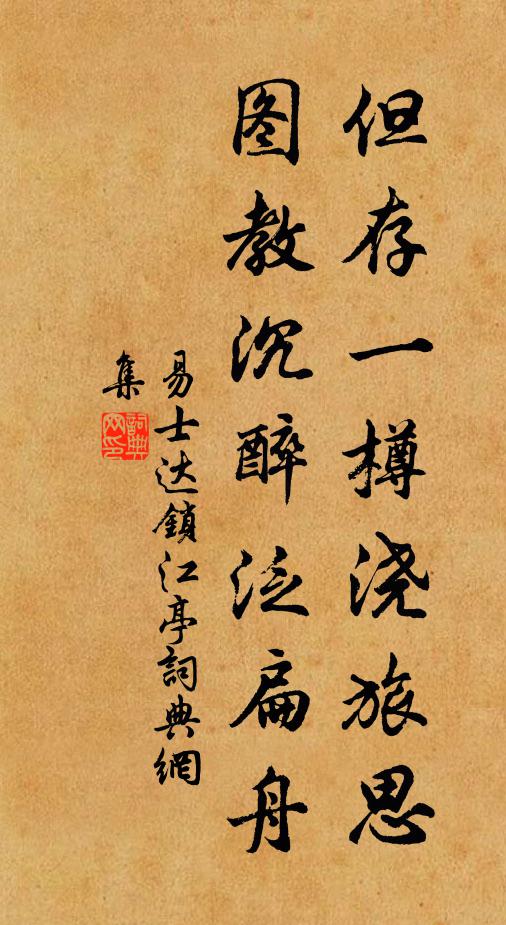 但存一樽浇旅思
图教沉醉泛扁舟
易士达鎖江亭詞典網
集
詞典网印